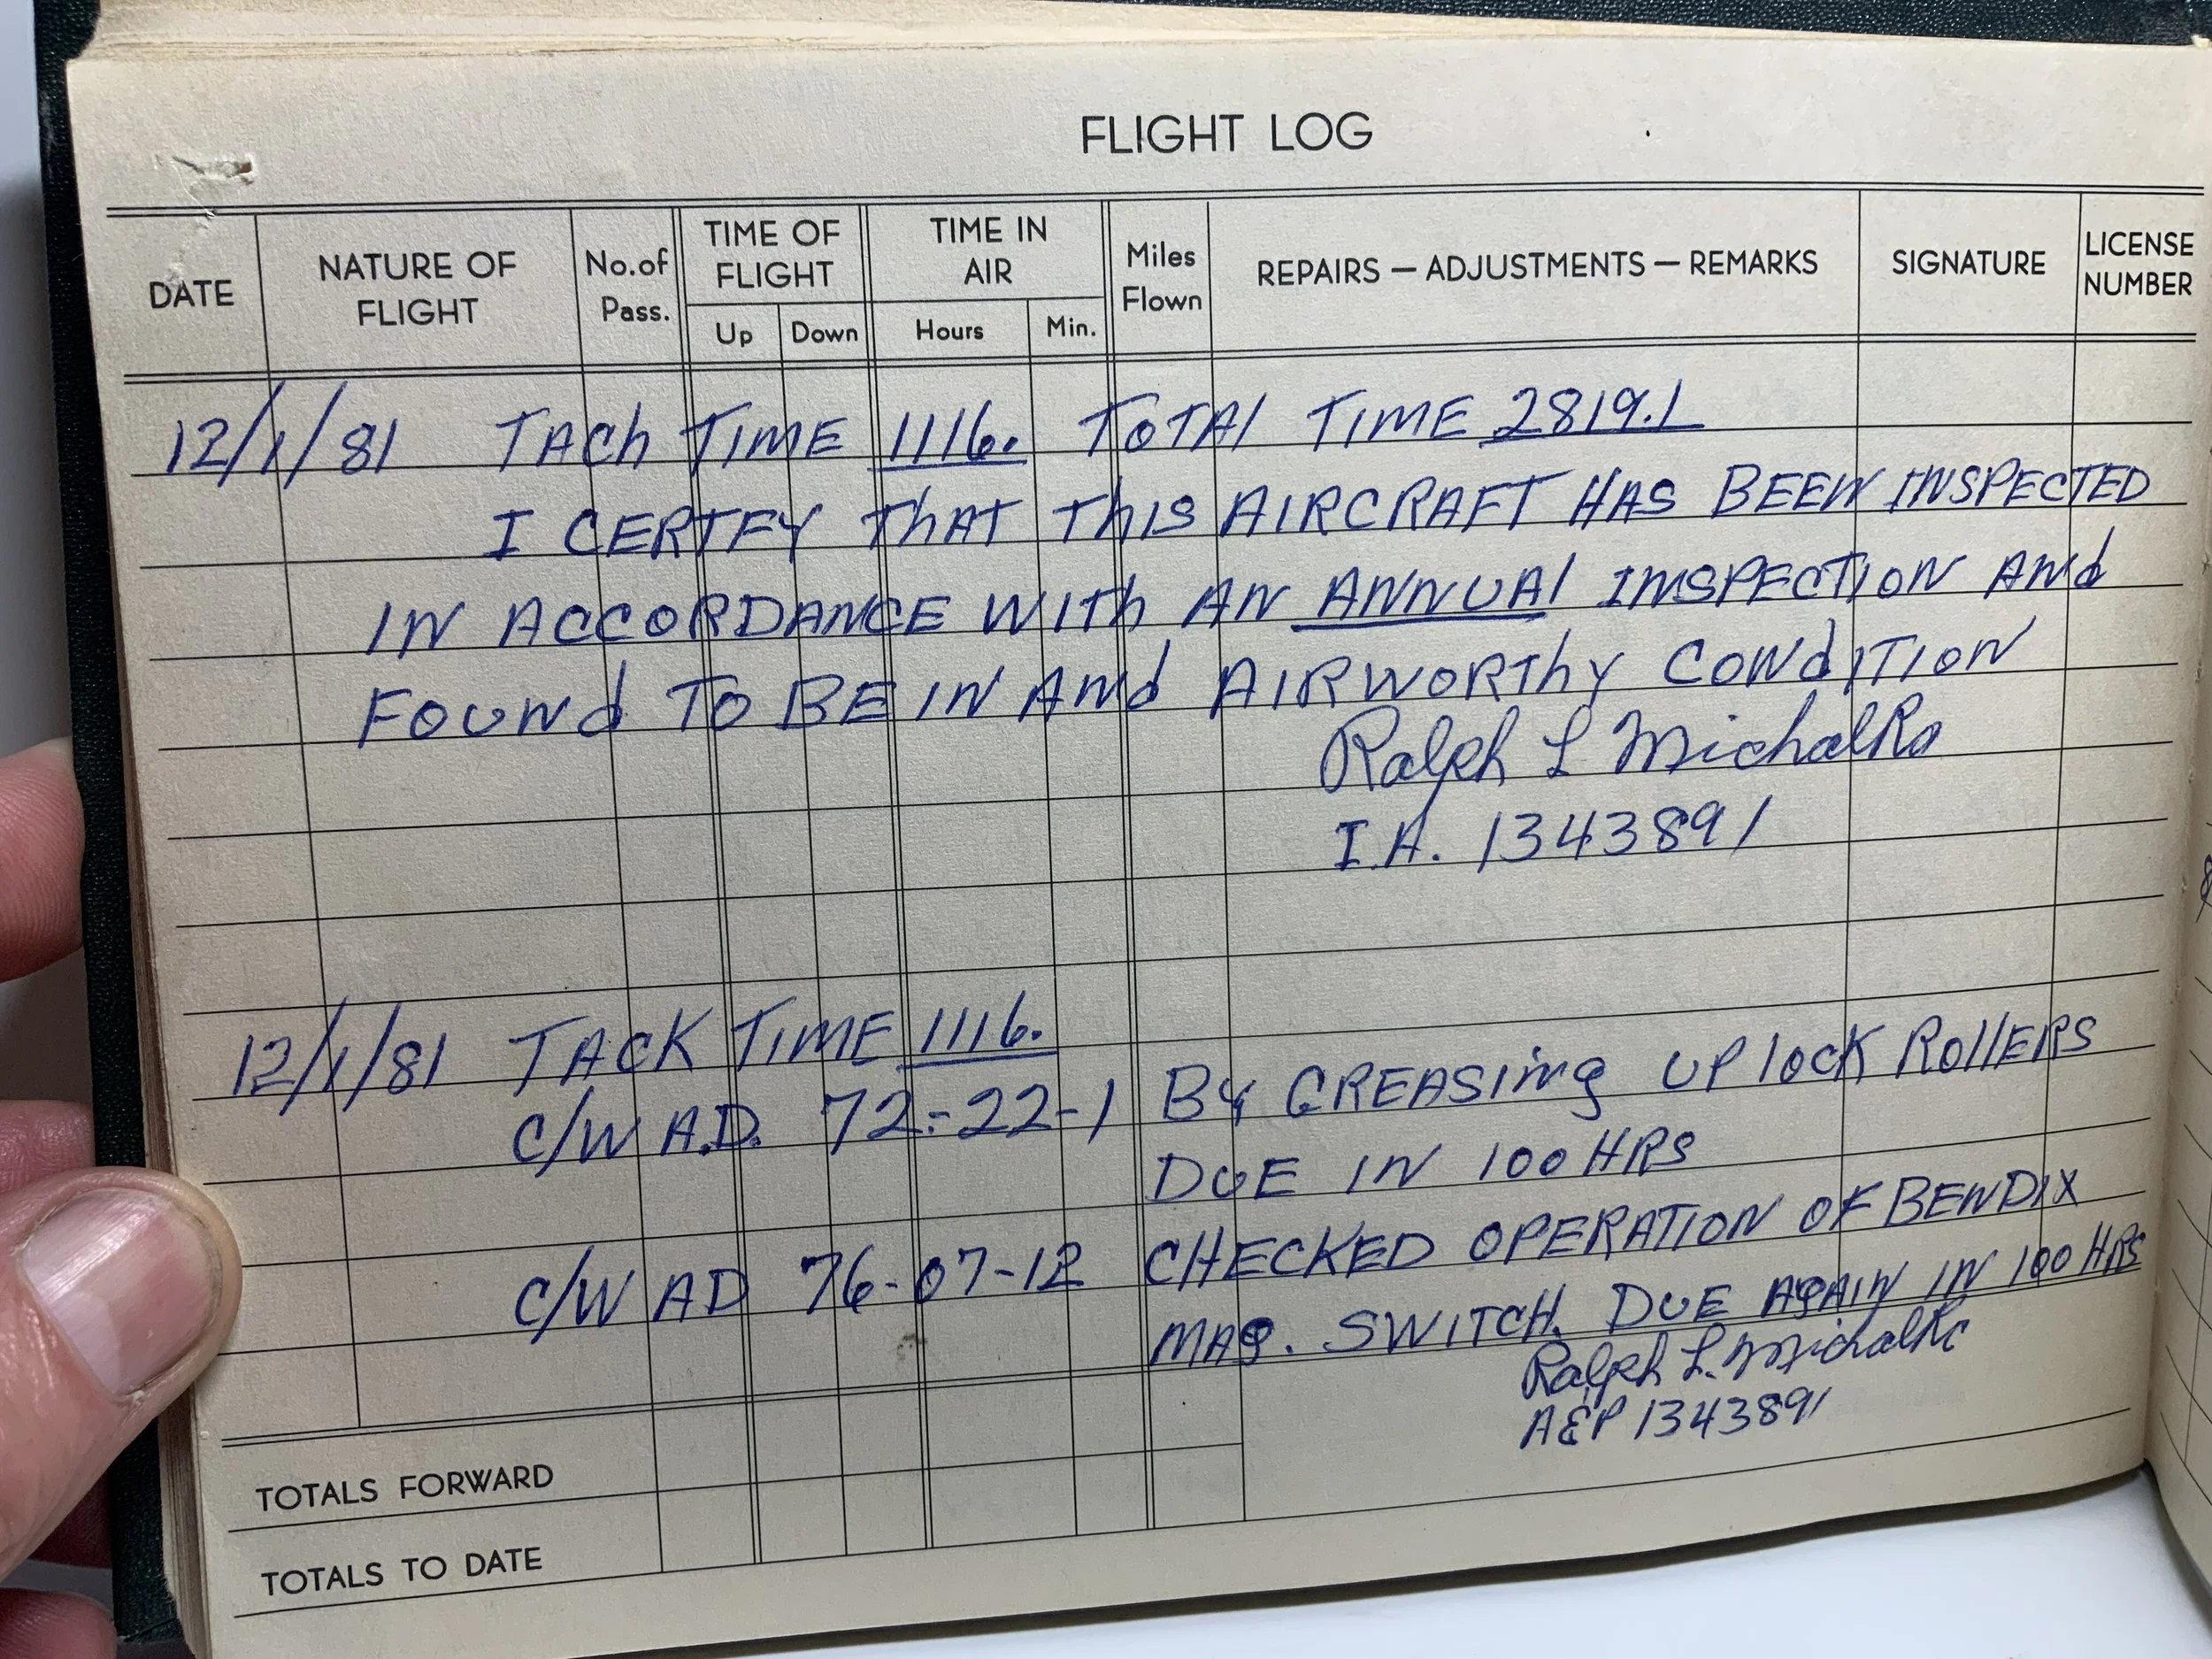 FLIGHT LOG
DATE
NATURE OF FLIGHT
No. of Pass.
TIME OF FLIGHT
Up
Down
TIME IN AIR
Hours
Min.
Miles Flown
REPAIRS — ADJUSTMENTS — REMARKS
SIGNATURE
LICENSE NUMBER
12/1/81 TACh TIME 1116. TOTAl TIME 2819.1
I CERTFY ThAT ThIS AIRCRAFT HAS BEEN INSPECTED
IN ACCORDANCE WITh AN ANNUAl INSPECTION ANd
FOUNd TO BE IN ANd AIRWORThY CONdITION
Ralph L Michalko
I.A. 1343891
12/1/81 TACK TIME 1116.
C/W A.D. 72-22-1 By GREASING UP lOCK ROllERS
DUE IN 100 HRS
C/W AD 76-07-12 CHECKED OPERATION OF BENDIX
MAG. SWITCH. DUE AGAIN IN 100 HRS
Ralph L. Michalko
A&P 1343891
TOTALS FORWARD
TOTALS TO DATE